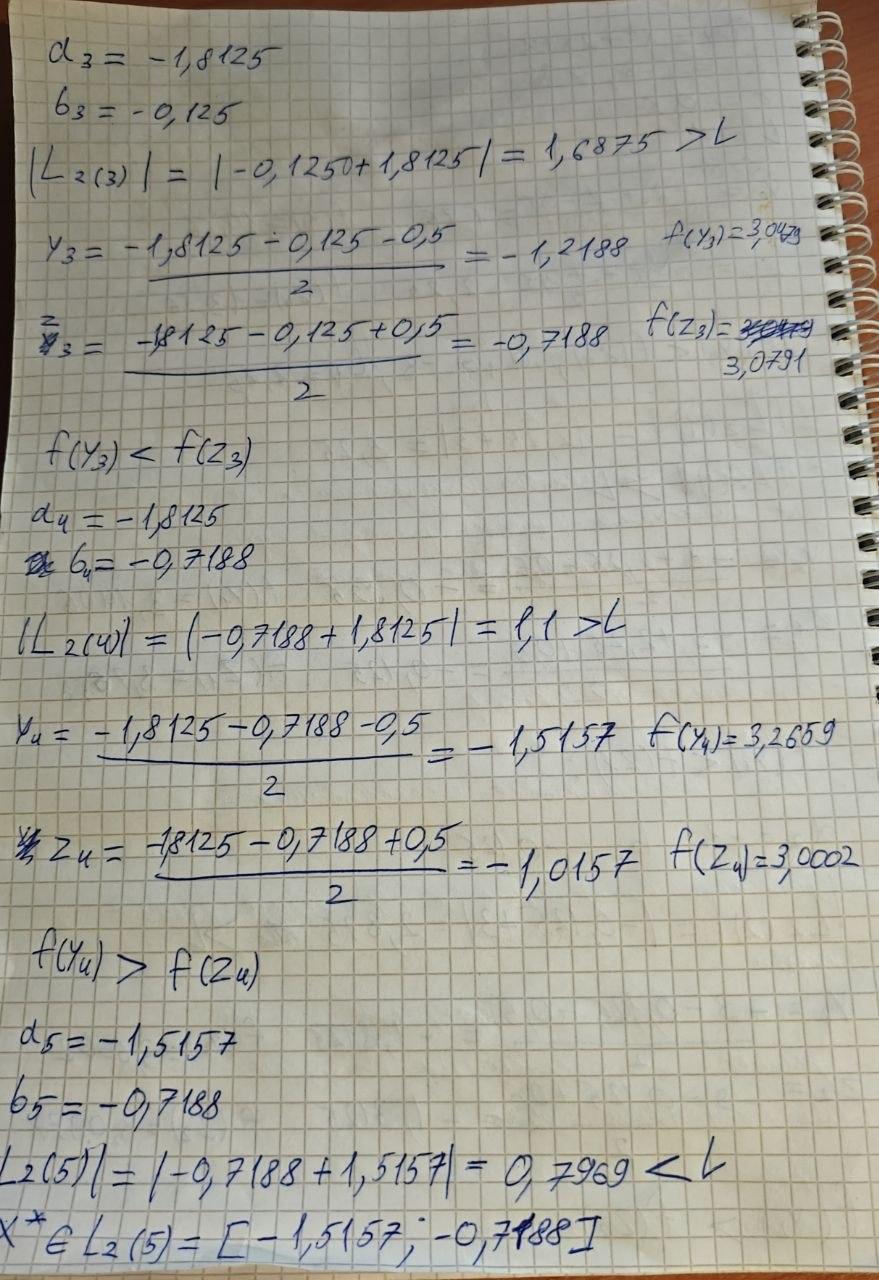 a₃ = -1,8125
b₃ = -0,125
|L₂(3)| = |-0,1250+1,8125| = 1,6875 > L
y₃ = (-1,8125 - 0,125 - 0,5)/2 = -1,2188 f(y₃)=3,0479
z₃ = (-1,8125 - 0,125 + 0,5)/2 = -0,7188 f(z₃)= 3,0791
f(y₃) < f(z₃)
a₄ = -1,8125
b₄ = -0,7188
|L₂(4)| = |-0,7188 + 1,8125| = 1,1 > L
y₄ = (-1,8125 - 0,7188 - 0,5)/2 = -1,5157 f(y₄)=3,2659
z₄ = (-1,8125 - 0,7188 + 0,5)/2 = -1,0157 f(z₄)=3,0002
f(y₄) > f(z₄)
a₅ = -1,5157
b₅ = -0,7188
L₂(5)| = |-0,7188 + 1,5157| = 0,7969 < L
x* ∈ L₂(5) = [-1,5157; -0,7188]